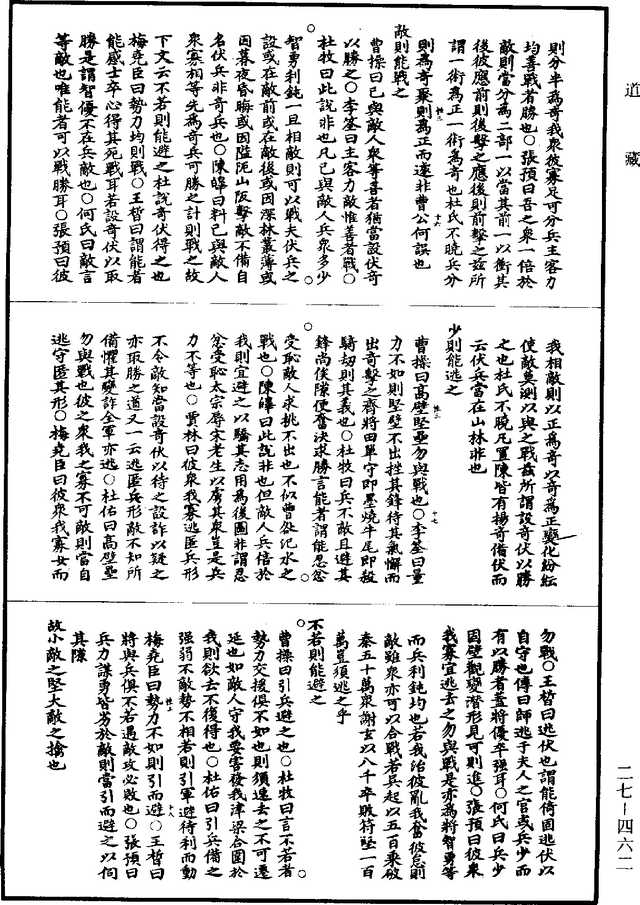 道藏
則分半為奇我衆彼寡足可分兵主客力
均善戰者勝也○張預曰吾之衆一倍於
敵則當分為二部一以當其前一以衝其
後彼應前則後擊之應後則前擊之茲所
謂一術為正一術為奇也杜氏不曉兵分
則為奇聚則為正而遽非曹公何誤也
敵則能戰之
曹操曰己與敵人衆等善者猶當設伏奇
以勝之○李筌曰主客力敵惟善者戰○
杜牧曰此說非也凡己與敵人兵衆多少
智勇利鈍一旦相敵則可以戰夫伏兵之
設或在敵前或在敵後或因深林叢薄或
因暮夜昏晦或因隘阨山阪擊敵不備自
名伏兵非奇兵也○陳皞曰料己與敵人
衆寡相等先為奇兵可勝之計則戰之故
下文云不若則能避之杜說奇伏得之也
梅堯臣曰勢力均則戰○王晳曰謂能者
能感士卒心得其死戰耳若設奇伏以取
勝是謂智優不在兵敵也○何氏曰敵言
等敵也唯能者可以戰勝耳○張預曰彼
我相敵則以正為奇以奇為正變化紛紜
使敵莫測以與之戰茲所謂設奇伏以勝
之也杜氏不曉凡置陳皆有揚奇備伏而
云伏兵當在山林非也
少則能逃之
曹操曰高壁堅壘勿與戰也○李筌曰量
力不如則堅壁不出挫其鋒待其氣懈而
出奇擊之齊將田單守即墨燒牛尾即殺
騎劫則其義也○杜牧曰兵不敵且避其
鋒尚俟隙便奮決求勝言能者謂能忍忿
受恥敵人求挑不出也不似曹咎汜水之
戰也○陳皞曰此說非也但敵人兵倍於
我則宜避之以驕其志用為後圖非謂忍
忿受恥太宗辱宋老生以虜其衆豈是兵
力不等也○賈林曰彼衆我寡逃匿兵形
不令敵知當設奇伏以待之設詐以疑之
亦取勝之道又一云逃匿兵形敵不知所
備懼其變詐全軍亦逃○杜佑曰高壁壘
勿與戰也彼之衆我之寡不可敵則當自
逃守匿其形○梅堯臣曰彼衆我寡去而
勿戰○王晳曰逃伏也謂能倚固逃伏以
自守也傳曰師逃于夫人之宫或兵少而
有以勝者蓋將優卒强耳○何氏曰兵少
固壁觀變潛形見可則進○張預曰彼衆
我寡宜逃去之勿與戰是亦為將智勇等
而兵利鈍均也若我治彼亂我奮彼怠則
敵雖衆亦可以合戰若吳起以五百乘破
秦五十萬衆謝玄以八千卒敗苻堅一百
萬豈須逃之乎
不若則能避之
曹操曰引兵避之也○杜牧曰言不若者
勢力交援俱不如也則須速去之不可遷
延也如敵人守我要害發我津梁合圍於
我則欲去不復得也○杜佑曰引兵備之
强弱不敵勢不相若則引軍避待利而動
梅堯臣曰勢力不如則引而避○王晳曰
將與兵俱不若遇敵攻必敗也○張預曰
兵力謀勇皆劣於敵則當引而避之以伺
其隙
故小敵之堅大敵之擒也
二七－四六二